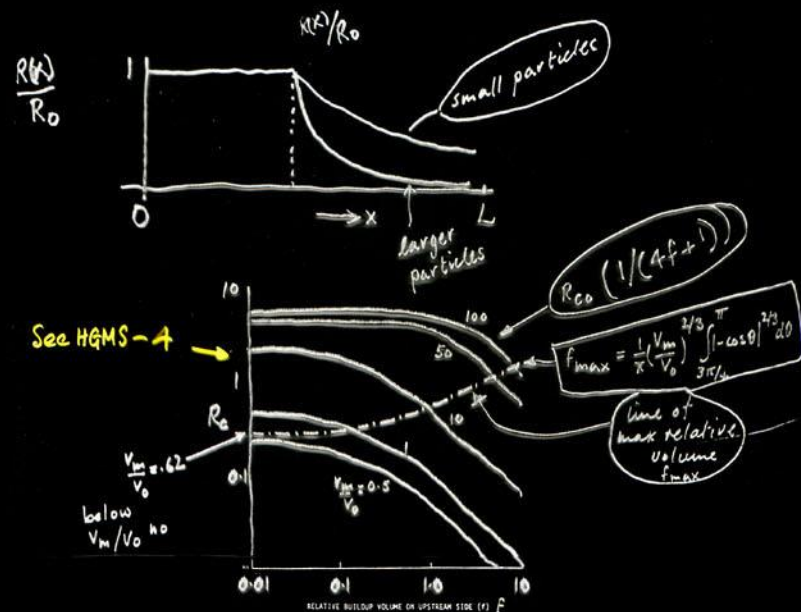 R(x)/R₀
R(x)
R₀
1
small particles
0
→ x
L
larger
particles
R₍c₀₎ (1/(4f+1))
10
See HGMS-4
100
50
f max = 1/π (Vm/V₀)^2/3 ∫ 3π/4 π |-cosθ|^2/3 dθ
1
10
line of
max relative
volume
f max
Rc
1
Vm/V₀ = .62
0.1
Vm/V₀ = 0.5
below
Vm/V₀ no
0.01
0.1
1.0
10
RELATIVE BUILDUP VOLUME ON UPSTREAM SIDE (f) f